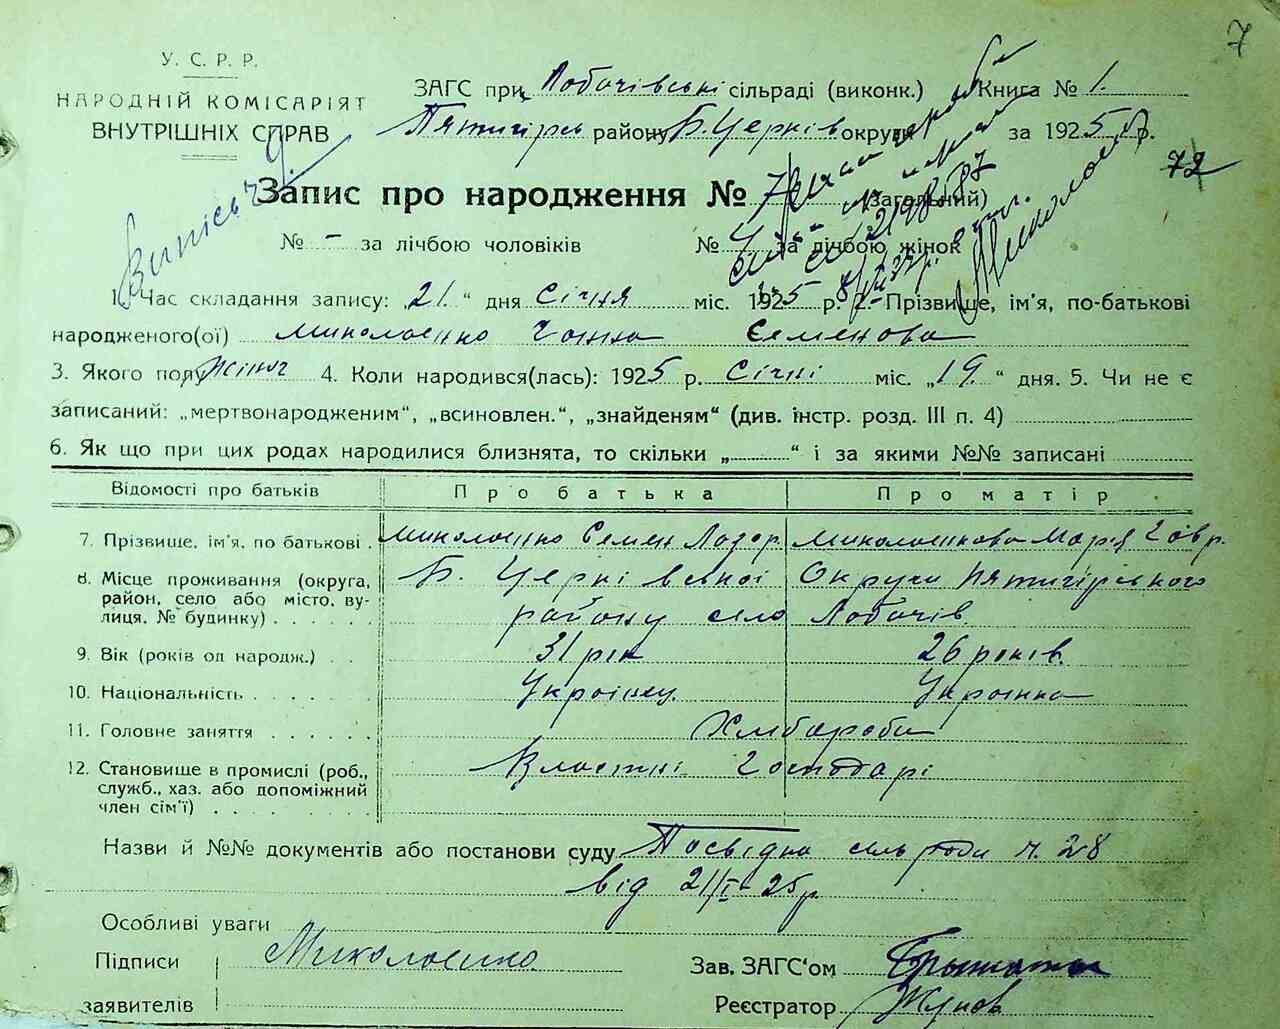 7
У. С. Р. Р.
НАРОДНІЙ КОМІСАРІЯТ
ВНУТРІШНІХ СПРАВ
ЗАГС при Лобачівські сільраді (виконк.) Книга № 1.
Пятигірсь району Б. Церків округи за 1925 р.
72
Запис про народження № 7 (загальний)
№ - за лічбою чоловіків № 4 за лічбою жінок
1. Час складання запису: „21." дня Січня міс. 1925 р. 2. Прізвище, ім'я, по-батькові
народженого(ої) Миколаенко Ганна Семенова
3. Якого полу жіноч 4. Коли народився(лась): 1925 р. Січні міс. „19." дня. 5. Чи не є
записаний: „мертвонародженим", „всиновлен.", „знайденям" (див. інстр. розд. III п. 4)
6. Як що при цих родах народилися близнята, то скільки „ " і за якими №№ записані
Відомості про батьків Про батька Про матір
7. Прізвище, ім'я, по батькові Миколаенко Семен Лазар. Миколаенкова Марія Гавр.
8. Місце проживання (округа, район, село або місто, вулиця, № будинку) Б. Церківської Округи Пятигірського
району село Лобачів
9. Вік (років од народж.) 31 рік 26 років.
10. Національність Українец. Украинка
11. Головне заняття Хлібароби
12. Становище в промислі (роб., служб., хаз. або допоміжний член сім'ї) Власткі Господарі
Назви й №№ документів або постанови суду Посвідка сельради ч. 28
від 21/I-25р.
Особливі уваги
Підписи Миколаенко
заявителів
Зав. ЗАГС'ом
Реєстратор Жуков